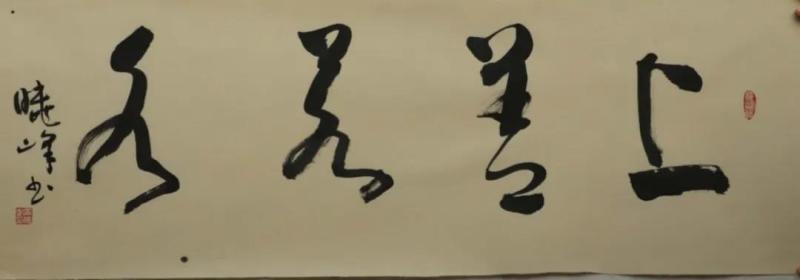 上善若水
晓峰书